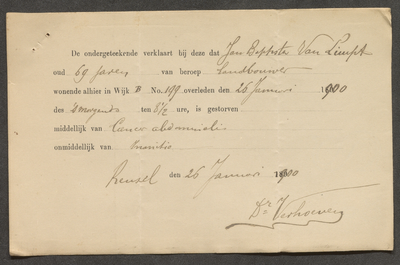 De ondergeteekende verklaart bij deze dat Jan Baptista Van Limpt
oud 69 jaren van beroep Landbouwer
wonende alhier in Wijk B No. 199 overleden den 26 Januari 1900
des s'morgends ten 8½ ure, is gestorven
middellijk van Cancer abdominalis
onmiddelijk van Inanitie
Reusel den 26 Januari 1900
Dr Verhoeven